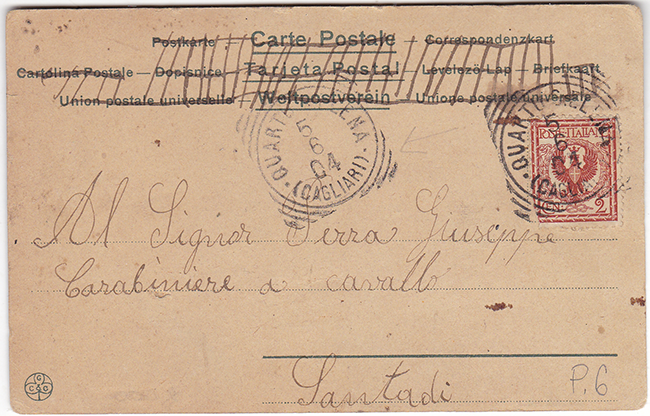 Postkarte – Carte Postale – Correspondenzkart
Cartolina Postale – Dopisnice – Tarjeta Postal – Levelező-Lap – Briefkaart
Union postale universelle – Weltpostverein – Unione postale universale
QUARTU S. ELENA
5 6 04
(CAGLIARI)
QUARTU S. ELENA
5 6 04
(CAGLIARI)
POSTE ITALIANE
2
Al Signor Serra Giuseppe
Carabiniere a cavallo
Santadi
P.6
G C C G